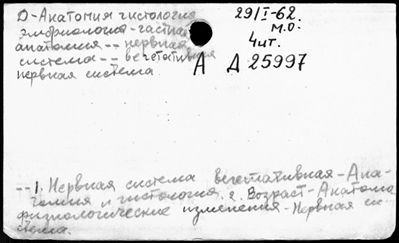 Д-Анатомия гистология
эмбриология-частная
анатомия -- нервная
система -- вегетативная
нервная система
29/I-62.
М.О.
4 шт.
А Д 25997
--1. Нервная система вегетативная-Ана-
томия и гистология. 2. Возраст-Анатомо
физиологические изменения-Нервная си-
стема.